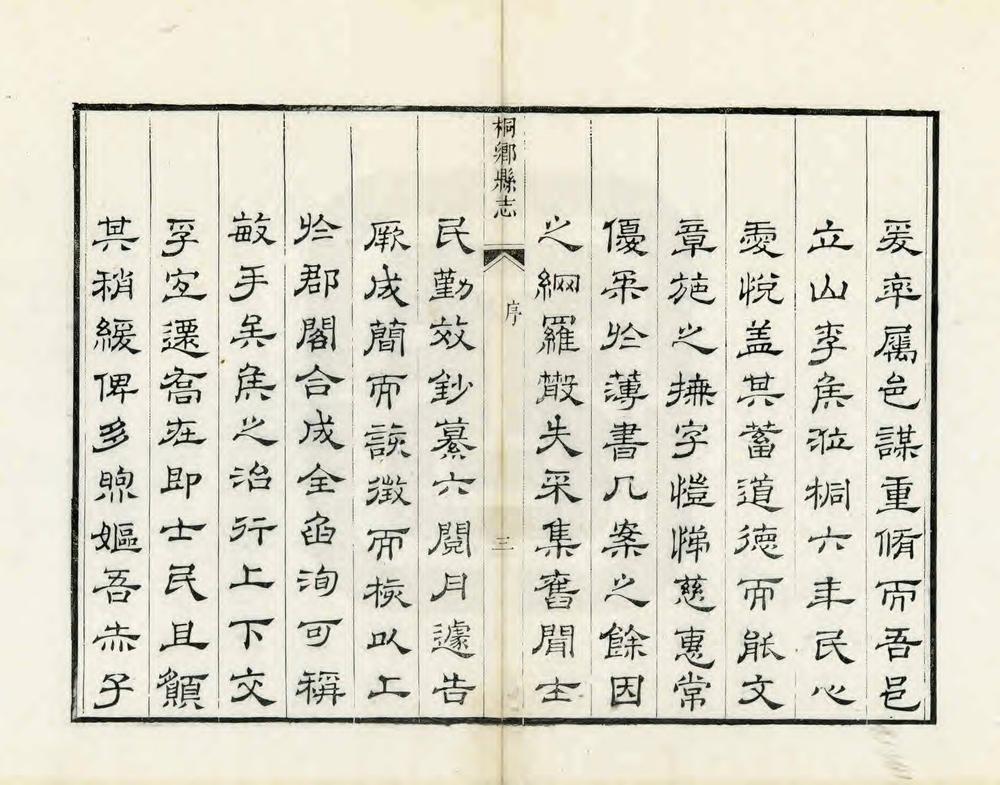 爰率屬邑謀重脩而吾邑
立山李矦涖桐六年民心
愛悅盖其蓄道德而能文
章施之撫字愷悌慈惠常
優采於薄書几案之餘因
之網羅散失采集舊聞士
桐鄉縣志
序
三
民勤效鈔纂六閱月遽告
厥成簡而該徵而核以上
於郡閣合成全函洵可稱
敏手矣矦之治行上下交
孚宜遷喬在即士民且願
其稍緩俾多煦嫗吾赤子